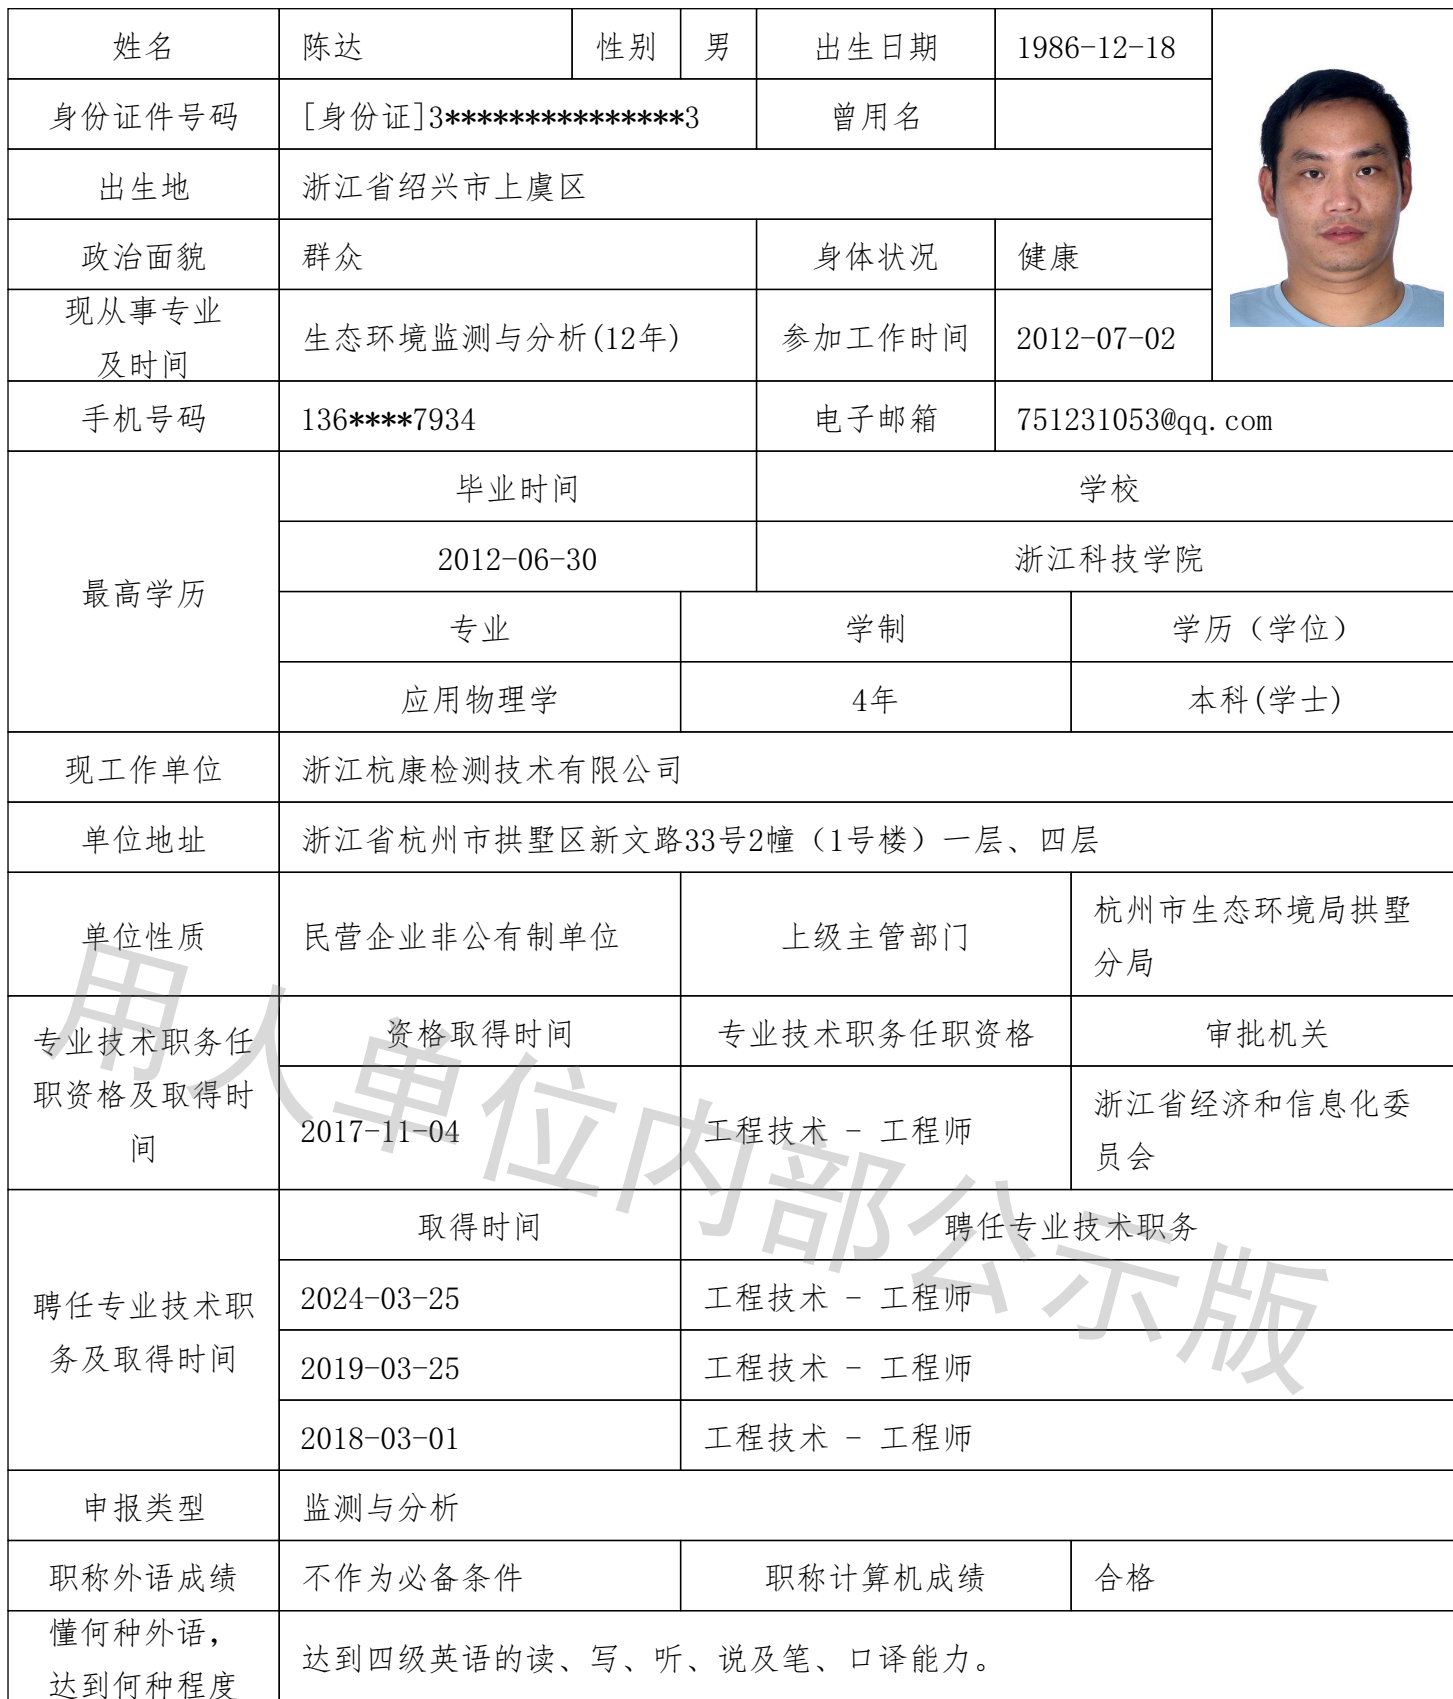 姓名 陈达 性别 男 出生日期 1986-12-18
身份证件号码 [身份证]3***************3 曾用名
出生地 浙江省绍兴市上虞区
政治面貌 群众 身体状况 健康
现从事专业
及时间
生态环境监测与分析(12年) 参加工作时间 2012-07-02
手机号码 136****7934 电子邮箱 751231053@qq.com
最高学历
毕业时间 学校
2012-06-30 浙江科技学院
专业 学制 学历（学位）
应用物理学 4年 本科(学士)
现工作单位 浙江杭康检测技术有限公司
单位地址 浙江省杭州市拱墅区新文路33号2幢（1号楼）一层、四层
单位性质 民营企业非公有制单位 上级主管部门 杭州市生态环境局拱墅
分局
专业技术职务任
职资格及取得时
间
资格取得时间 专业技术职务任职资格 审批机关
2017-11-04 工程技术 - 工程师 浙江省经济和信息化委
员会
聘任专业技术职
务及取得时间
取得时间 聘任专业技术职务
2024-03-25 工程技术 - 工程师
2019-03-25 工程技术 - 工程师
2018-03-01 工程技术 - 工程师
申报类型 监测与分析
职称外语成绩 不作为必备条件 职称计算机成绩 合格
懂何种外语，
达到何种程度
达到四级英语的读、写、听、说及笔、口译能力。
用人单位内部公示版